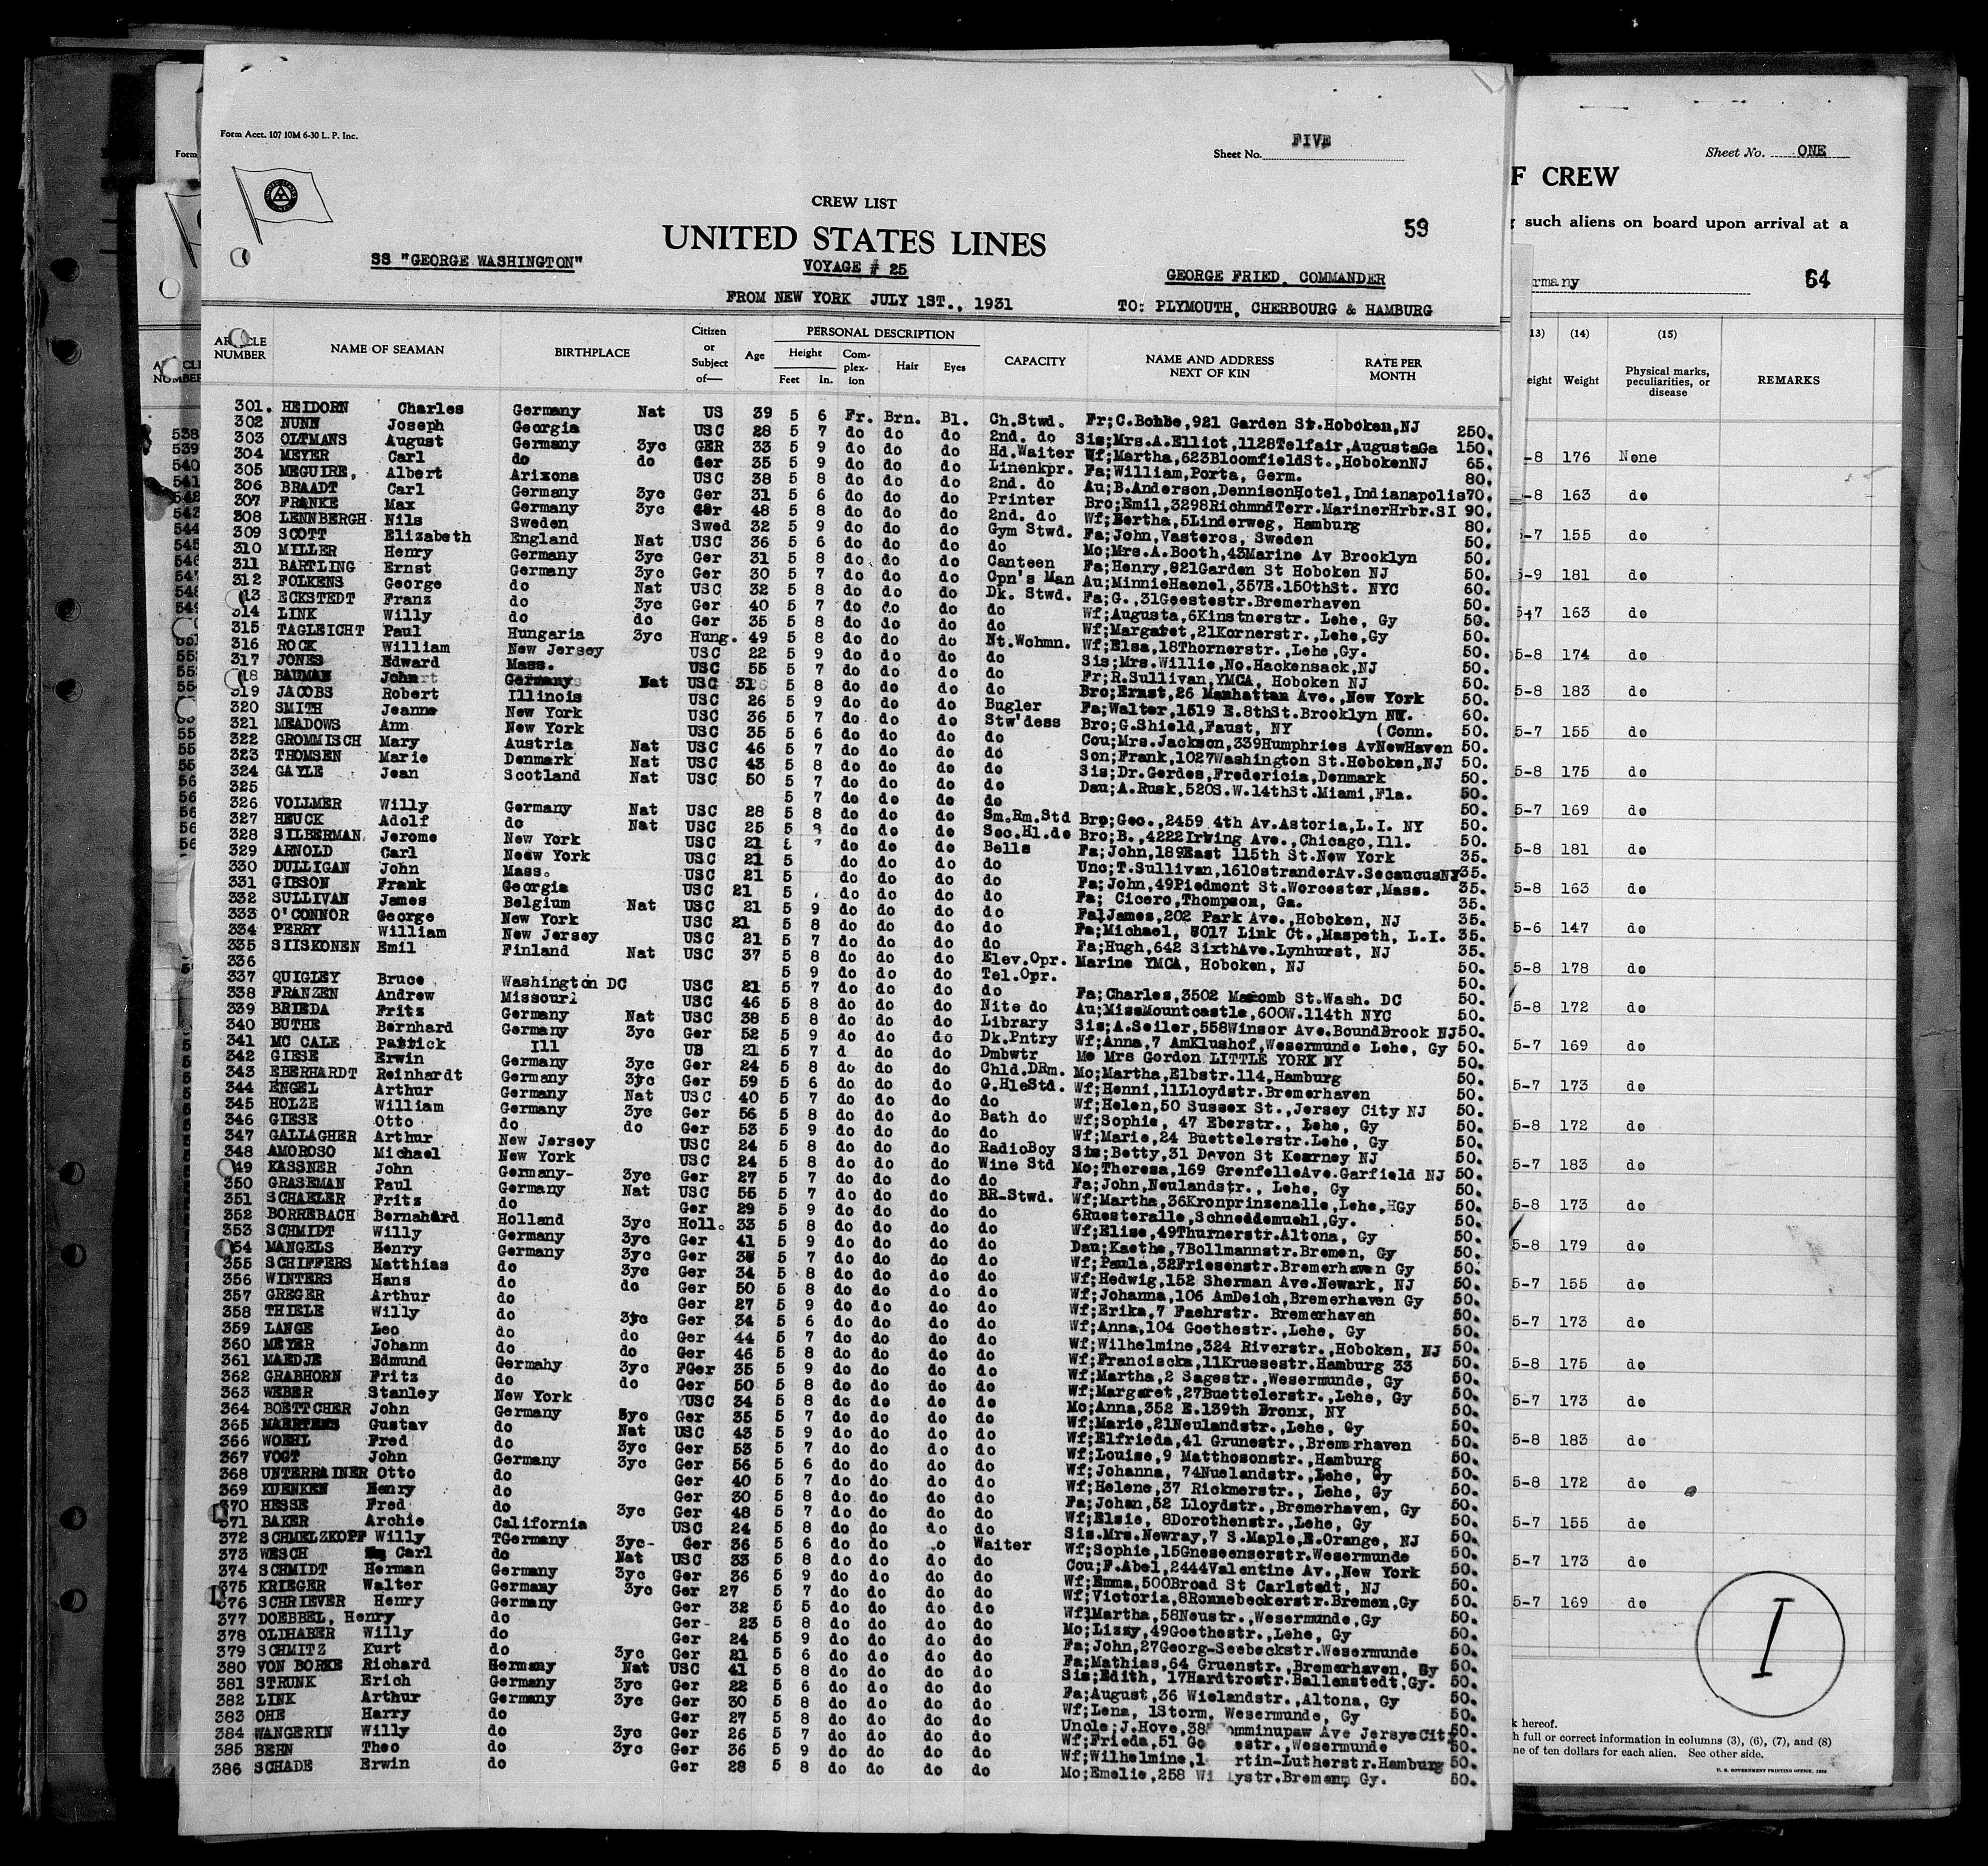 Form Acct. 107 10M 6-30 L. P. Inc.
Sheet No. FIVE
CREW LIST
UNITED STATES LINES
59
SS "GEORGE WASHINGTON"
VOYAGE # 25
GEORGE FRIED, COMMANDER
FROM NEW YORK JULY 1ST., 1931
TO: PLYMOUTH, CHERBOURG & HAMBURG
ARTICLE NUMBER NAME OF SEAMAN BIRTHPLACE Citizen or Subject of— Age PERSONAL DESCRIPTION Height Feet In. Complexion Hair Eyes CAPACITY NAME AND ADDRESS NEXT OF KIN RATE PER MONTH
301. HEIDORN Charles Germany Nat US 39 5 6 Fr. Brn. Bl. Ch.Stwd. Fr;C.Bohbe,921 Garden St.Hoboken,NJ 250.
302 NUNN Joseph Georgia USC 28 5 7 do do do 2nd. do Sis;Mrs.A.Elliot,1128Telfair,AugustaGa 150.
303 OLTMANS August Germany 3yc GER 33 5 9 do do do Hd.Waiter Wf;Martha,623BloomfieldSt.,HobokenNJ 65.
304 MEYER Carl do do Ger 35 5 9 do do do Linenkpr. Fa;William,Porta, Germ. 80.
305 MEGUIRE, Albert Arixona USC 38 5 8 do do do 2nd. do Au;B.Anderson,DennisonHotel,Indianapolis 70.
306 BRAADT Carl Germany 3yc Ger 31 5 6 do do do Printer Bro;Emil,3298RichmndTerr.MarinerHrbr.SI 90.
307 FRANKE Max Germany 3yc Ger 48 5 8 do do do 2nd. do Wf;Bertha,5Linderweg, Hamburg 80.
308 LENNBERGH Nils Sweden Swed 32 5 9 do do do Gym Stwd. Fa;John,Vasteros, Sweden 50.
309 SCOTT Elizabeth England Nat USC 36 5 6 do do do do Mo;Mrs.A.Booth,43Marine Av Brooklyn 50.
310 MILLER Henry Germany 3yc Ger 31 5 8 do do do Canteen Fa;Henry,921Garden St Hoboken NJ 50.
311 BARTLING Ernst Germany 3yc Ger 30 5 7 do do do Cpn's Man Au;MinnieHaenel,357E.150thSt. NYC 60.
312 FOLKENS George do Nat USC 32 5 8 do do do Dk. Stwd. Fa;G.,31Geestestr.Bremerhaven 50.
13 ECKSTEDT Franz do 3yc Ger 40 5 7 do do do do Wf;Augusta,6Kinstnerstr. Lehe, Gy 50.
314 LINK Willy do do Ger 35 5 8 do do do do Wf;Margaret,21Kornerstr.,Lehe,Gy 50.
315 TAGLEICHT Paul Hungaria 3yc Hung. 49 5 8 do do do Nt.Wchmn. Wf;Elsa,18Thornerstr.,Lehe,Gy. 50.
316 ROCK William New Jersey USC 22 5 9 do do do do Sis;Mrs.Willie,No.Hackensack,NJ 50.
317 JONES Edward Mass. USC 55 5 7 do do do do Fr;R.Sullivan,YMCA, Hoboken NJ 50.
18 BAUMAN John Germany Nat USC 31 5 8 do do do do Bro;Ernst,26 Manhattan Ave.,New York 50.
319 JACOBS Robert Illinois USC 26 5 9 do do do Bugler Fa;Walter,1519 E.8thSt.Brooklyn NY. 60.
320 SMITH Jeanne New York USC 36 5 7 do do do Stw'dess Bro;G.Shield,Faust, NY (Conn. 50.
321 MEADOWS Ann New York USC 35 5 6 do do do do Cou;Mrs.Jackson,339Humphries AvNewHaven 50.
322 GROMMISCH Mary Austria Nat USC 46 5 7 do do do do Son;Frank,1027Washington St.Hoboken,NJ 50.
323 THOMSEN Marie Denmark Nat USC 43 5 8 do do do do Sis;Dr.Gerdes,Fredericia,Denmark 50.
324 GAYLE Jean Scotland Nat USC 50 5 7 do do do do Dau;A.Rusk,520S.W.14thSt.Miami,Fla. 50.
325 5 7 do do do do 50.
326 VOLLMER Willy Germany Nat USC 28 5 8 do do do Sm.Rm.Std Bro;Geo.,2459 4th Av.Astoria,L.I. NY 50.
327 HEUCK Adolf do Nat USC 25 5 8 do do do Sec.Hl.do Bro;B.,4222Irving Ave.,Chicago,Ill. 50.
328 SILBERMAN Jerome New York USC 21 do do do Bells Fa;John,189East 115th St.New York 35.
329 ARNOLD Carl Neew York USC 21 5 do do do do Unc;T.Sullivan,161OstranderAv.SecaucusNJ 35.
330 DULLIGAN John Mass. USC 21 5 do do do do Fa;John,49Piedmont St.Worcester,Mass. 35.
331 GIBSON Frank Georgia USC 21 5 do do do do Fa; Cicero,Thompson, Ga. 35.
332 SULLIVAN James Belgium Nat USC 21 5 9 do do do do Fa;James,202 Park Ave.,Hoboken, NJ 35.
333 O'CONNOR George New York USC 21 5 8 do do do do Fa;Michael, 5017 Link Ct.,Maspeth, L.I. 35.
334 PERRY William New Jersey USC 21 5 7 do do do do Fa;Hugh,642 SixthAve.Lynhurst, NJ 35.
335 SIISKONEN Emil Finland Nat USC 37 5 8 do do do Elev.Opr. Marine YMCA, Hoboken, NJ 50.
336 5 9 do do do Tel.Opr. 50.
337 QUIGLEY Bruce Washington DC USC 21 5 7 do do do do Fa;Charles,3502 Macomb St.Wash. DC 50.
338 FRANZEN Andrew Missouri USC 46 5 8 do do do Nite do Au;MissMountcastle,600W.114th NYC 50.
339 BRIEDA Fritz Germany Nat USC 38 5 8 do do do Library Sis;A.Seiler,558Winsor Ave.BoundBrook NJ 50.
340 BUTHE Bernhard Germany 3yc Ger 52 5 9 do do do Dk.Pntry Wf;Anna,7 AmKlushof,Wesermunde Lehe, Gy 50.
341 MC CALE Patrick Ill US 21 5 7 d do do Dmbwtr Mo Mrs Gordon LITTLE YORK NY 50.
342 GIESE Erwin Germany 3yc Ger 24 5 8 do do do Chld.DRm. Mo;Martha,Elbstr.114,Hamburg 50.
343 EBERHARDT Reinhardt Germany 3yc Ger 59 5 6 do do do G.HleStd. Wf;Henni,11Lloydstr.Bremerhaven 50.
344 ENGEL Arthur Germany Nat USC 40 5 7 do do do do Wf;Helen,50 Sussex St.,Jersey City NJ 50.
345 HOLZE William Germany 3yc Ger 56 5 8 do do do Bath do Wf;Sophie, 47 Eberstr., Lehe, Gy 50.
346 GIESE Otto do do Ger 53 5 9 do do do do Wf;Marie,24 Buettelerstr.Lehe, Gy 50.
347 GALLAGHER Arthur New Jersey USC 24 5 8 do do do RadioBoy Sis;Betty,31 Devon St Kearney NJ 50.
348 AMOROSO Michael New York USC 24 5 8 do do do Wine Std Mo;Theresa,169 GrenfelleAve.Garfield NJ 50.
49 KASSNER John Germany- 3yc Ger 27 5 7 do do do do Fa;John,Neulandstr., Lehe, Gy 50.
350 GRASEMAN Paul Germany Nat USC 55 5 7 do do do BR-Stwd. Wf;Martha,36Kronprinzenalle,Lehe,HGy 50.
351 SCHAELER Fritz do Ger 29 5 9 do do do do 6Ruesteralle,Schneddemuehl,Gy. 50.
352 BORREBACH Bernahard Holland 3yc Holl. 33 5 8 do do do do Wf;Elise,49Thurnerstr.Altona, Gy 50.
353 SCHMIDT Willy Germany 3yc Ger 41 5 9 do do do do Dau;Kaethe,7Bollmannstr.Bremen, Gy 50.
354 MANGELS Henry Germany 3yc Ger 38 5 7 do do do do Wf;Paula,32Friesenstr.Bremerhaven Gy 50.
355 SCHIFFERS Matthias do 3yc Ger 34 5 8 do do do do Wf;Hedwig,152 Sherman Ave.Newark, NJ 50.
356 WINTERS Hans do do Ger 50 5 8 do do do do Wf;Johanna,106 AmDeich,Bremerhaven Gy 50.
357 GREGER Arthur do Ger 27 5 9 do do do do Wf;Erika,7 Faehrstr. Bremerhaven 50.
358 THIELE Willy do 3yc Ger 34 5 6 do do do do Wf;Anna,104 Goethestr.,Lehe, Gy 50.
359 LANGE Leo do do Ger 44 5 7 do do do do Wf;Wilhelmine,324 Riverstr.,Hoboken, NJ 50.
360 MEYER Johann do do Ger 46 5 8 do do do do Wf;Franciscka,11Kruesestr.Hamburg 33 50.
361 MAEDJE Edmund Germahy 3yc FGer 35 5 9 do do do do Wf;Martha,2 Sagestr.,Wesermunde, Gy 50.
362 GRABHORN Fritz do do Ger 50 5 8 do do do do Wf;Margaret,27Buettelerstr.,Lehe, Gy 50.
363 WEBER Stanley New York YUSC 34 5 8 do do do do Mo;Anna,352 E.139th Bronx, NY 50.
364 BOETTCHER John Germany 3yc Ger 35 5 7 do do do do Wf;Marie,21Neulandstr.,Lehe, Gy 50.
365 MAERTENS Gustav do Nat USC 43 5 9 do do do do Wf;Elfrieda,41 Grunestr.,Bremerhaven 50.
366 WOEHL Fred do 3yc Ger 53 5 7 do do do do Wf;Louise,9 Matthosonstr.,Hamburg 50.
367 VOGT John Germany 3yc Ger 56 5 6 do do do do Wf;Johanna, 74Nuelandstr.,Lehe, Gy 50.
368 UNTERRAINER Otto do Ger 40 5 7 do do do do Wf;Helene,37 Rickmerstr., Lehe, Gy 50.
369 KUENKEN Henry do Ger 30 5 8 do do do do Fa;Johan,52 Lloydstr.,Bremerhaven, Gy 50.
370 HESSE Fred do 3yc Ger 48 5 7 do do do do Wf;Elsie, 8Dorothenstr.,Lehe, Gy 50.
371 BAKER Archie California USC 24 5 8 do do do do Sis.Mrs.Newray,7 S.Maple,E.Orange, NJ 50.
372 SCHMELZKOPF Willy TGermany 3yc- Ger 36 5 6 do do o Waiter Wf;Sophie,15Gneseenserstr.Wesermunde 50.
373 WESCH Carl do Nat USC 33 5 8 do do do do Cou;F.Abel,2444Valentine Av.,New York 50.
374 SCHMIDT Herman Germany 3yc Ger 36 5 9 do do do do Wf;Emma,500Broad St Carlstadt, NJ 50.
375 KRIEGER Walter Germany 3yc Ger 27 5 7 do do do do Wf;Victoria,8Ronnebeckerstr.Bremen,Gy 50.
376 SCHRIEVER Henry Germany Ger 32 5 5 do do do do Wf;Martha,58Neustr.,Wesermunde,Gy 50.
377 DOEBBEL, Henry do Ger- 23 5 8 do do do do Mo;Lizzy,49Goethestr.,Lehe, Gy 50.
378 OLDHABER Willy do Ger 24 5 9 do do do do Fa;John,27Georg-Seebeckstr.Wesermunde 50.
379 SCHMITZ Kurt do 3yc Ger 21 5 6 do do do do Fa;Mathias,64 Gruenstr.,Bremerhaven, Gy 50.
380 VON BORKE Richard Germany Nat USC 41 5 8 do do do do Sis;Edith, 17Hardtrostr.Ballenstedt,Gy. 50.
381 STRUNK Erich Germany 3yc Ger 22 5 6 do do do do Fa;August,36 Wielandstr.,Altona, Gy 50.
382 LINK Arthur Germany 3yc Ger 30 5 8 do do do do Wf;Lena, 1Storm, Wesermunde, Gy 50.
383 OHE Harry do Ger 27 5 8 do do do do Uncle;J.Hove,38 omminupaw Ave JersyeCity 50.
384 WANGERIN Willy do 3yc Ger 26 5 7 do do do do Wf;Frieda,51 Go estr.,Wesermunde 50.
385 BEHN Theo do 3yc Ger 36 5 9 do do do do Wf;Wilhelmine,1 rtin-Lutherstr.Hamburg 50.
386 SCHADE Erwin do Ger 28 5 8 do do do do Mo;Emelie,258 Wi lystr.Bremen, Gy. 50.
Sheet No. ONE
F CREW
such aliens on board upon arrival at a
rmany
64
13) (14) (15)
eight Weight Physical marks, peculiarities, or disease REMARKS
-8 176 None
-8 163 do
-7 155 do
5-9 181 do
5-7 163 do
5-8 174 do
5-8 183 do
5-7 155 do
5-8 175 do
5-7 169 do
5-8 181 do
5-8 163 do
5-6 147 do
5-8 178 do
5-8 172 do
5-7 169 do
5-7 173 do
5-8 172 do
5-7 183 do
5-8 173 do
5-8 179 do
5-7 155 do
5-7 173 do
5-8 175 do
5-7 173 do
5-8 183 do
5-8 172 do
5-7 155 do
5-7 173 do
5-7 169 do
I
k hereof.
h full or correct information in columns (3), (6), (7), and (8)
ne of ten dollars for each alien. See other side.
U. S. GOVERNMENT PRINTING OFFICE